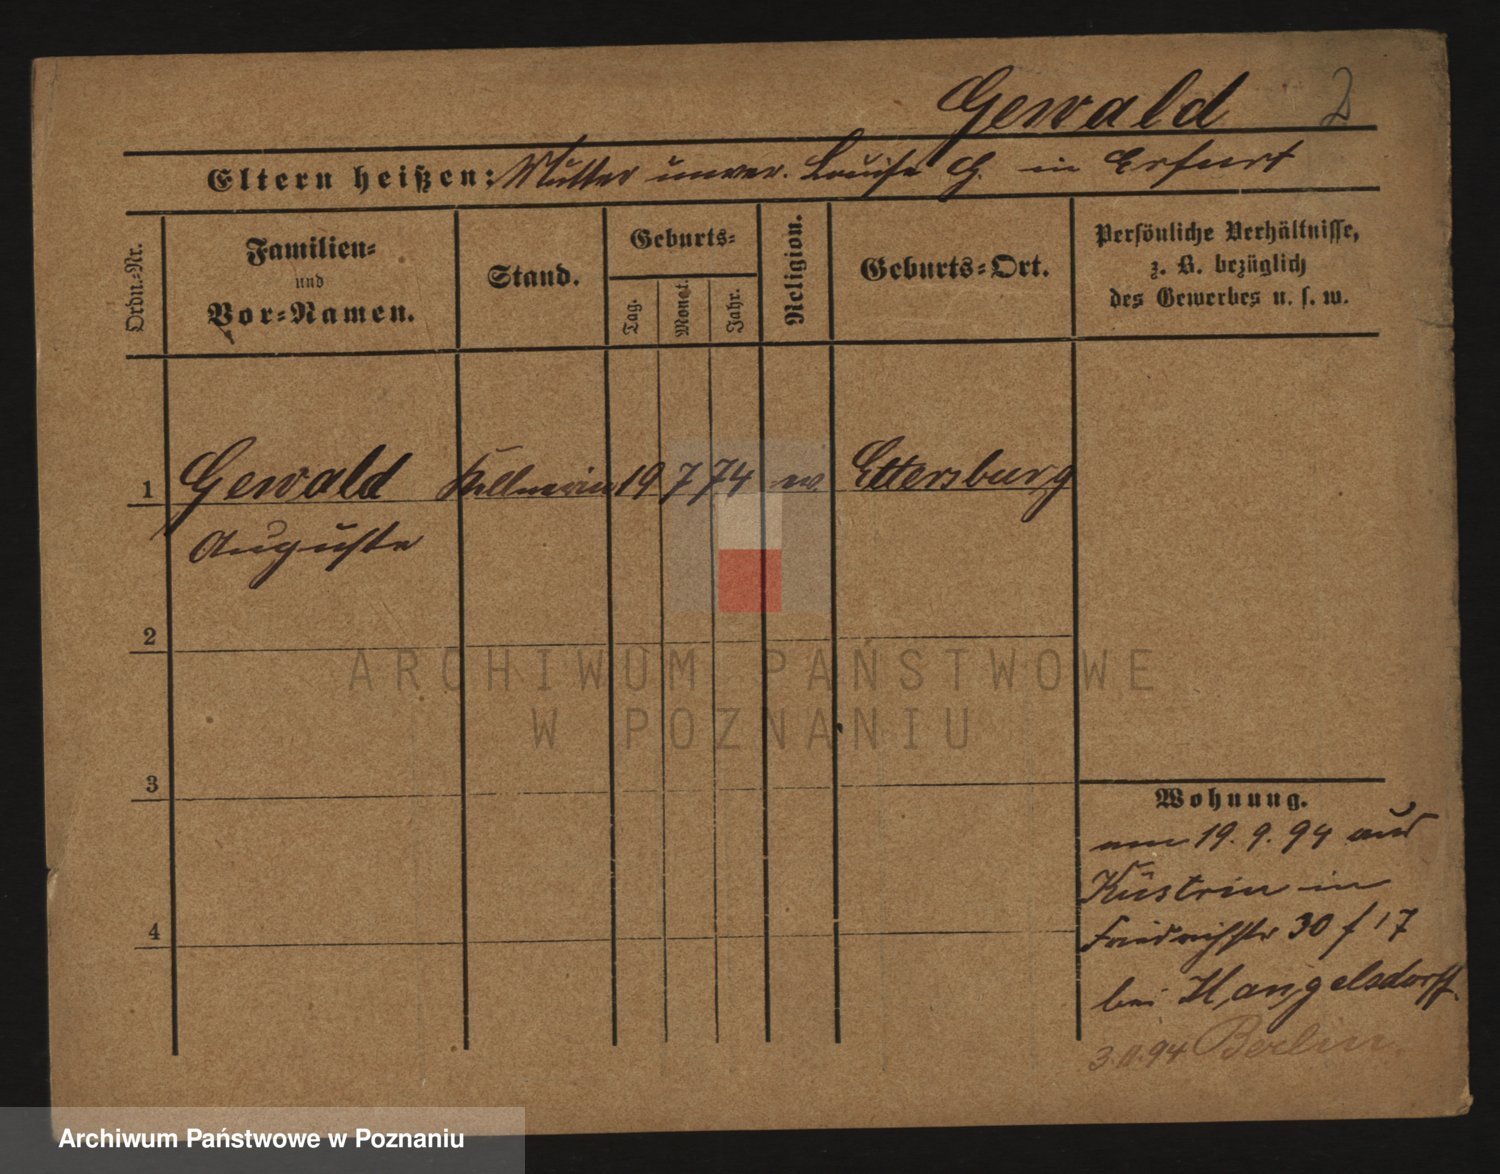 Gewald 2
Eltern heißen: Mutter unver. Louise G. in Erfurt
Ordn.-Nr.
Familien-
und
Vor-Namen.
Stand.
Geburts-
Tag.
Monat.
Jahr.
Religion.
Geburts-Ort.
Persönliche Verhältnisse,
z. B. bezüglich
des Gewerbes u. s. w.
1 Gewald Kellnerin 19 7 74 ev. Ettersburg
Auguste
2
3
4
Wohnung.
am 19. 9. 94 aus
Küstrin in
Friedrichstr 30 / 17
bei Hangelsdorff.
3.11.94 Berlin.
ARCHIWUM PAŃSTWOWE
W POZNANIU
Archiwum Państwowe w Poznaniu